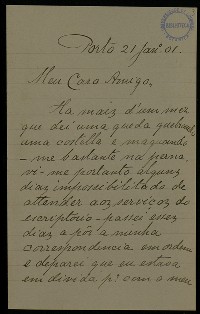 Porto 21 Janº 01.
Meu Caro Amigo,
Ha maiz d'um mez
que dei uma queda quebrando
uma costella e magoando
-me bastante na perna,
vi-me portanto alguns
diaz impossibilitado de
attender aos serviços do
escriptorio - passei esses
diaz a pôr a minha
correspondencia em ordem
e deparei que eu estava
em divida pª com o meu